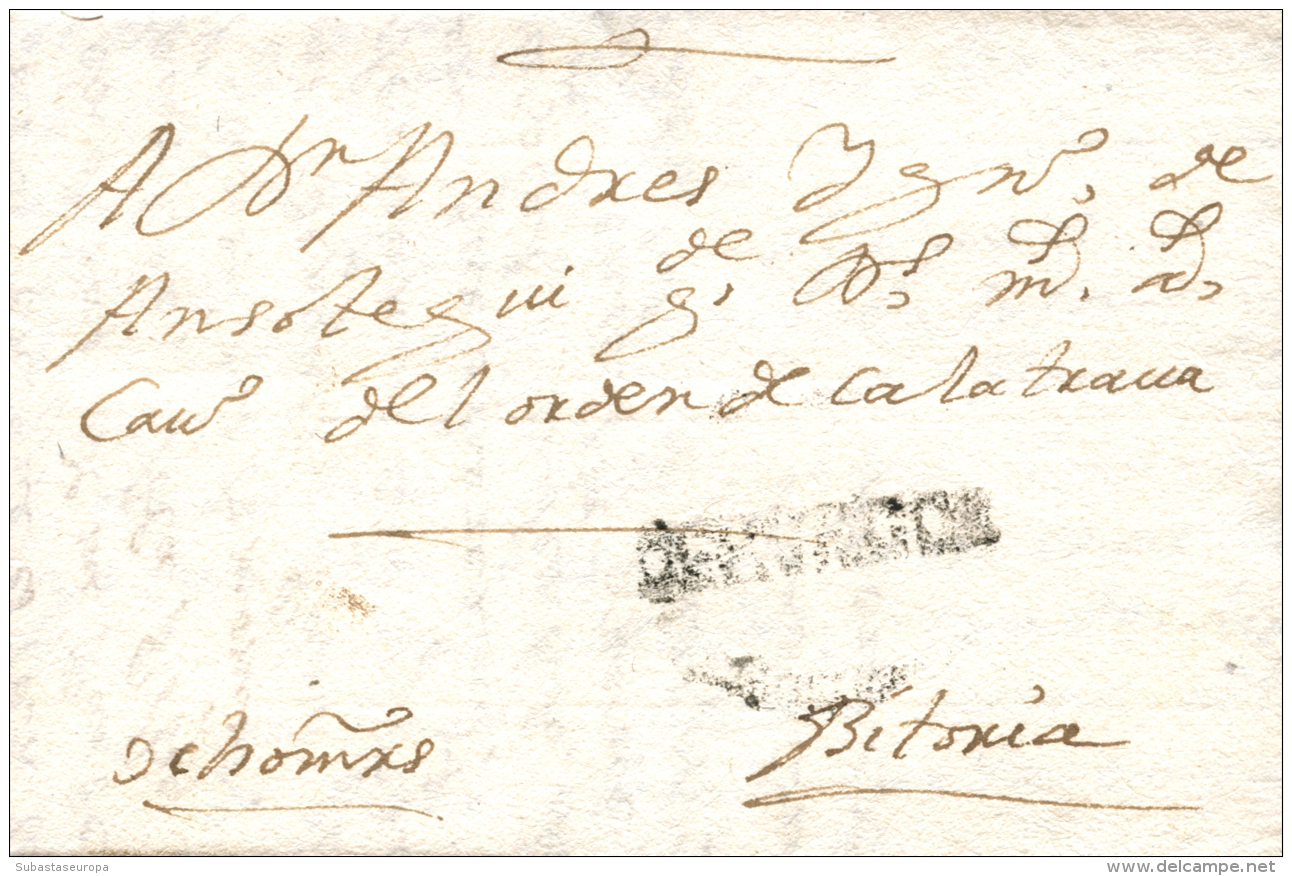 A Dn Andres Ygnº. de
Ansotegui
de
g. Ds. md. ad.
Cauº del orden de calatraua
DEBURGOS
Bitoria
Subastaseuropa
www.delcampe.net